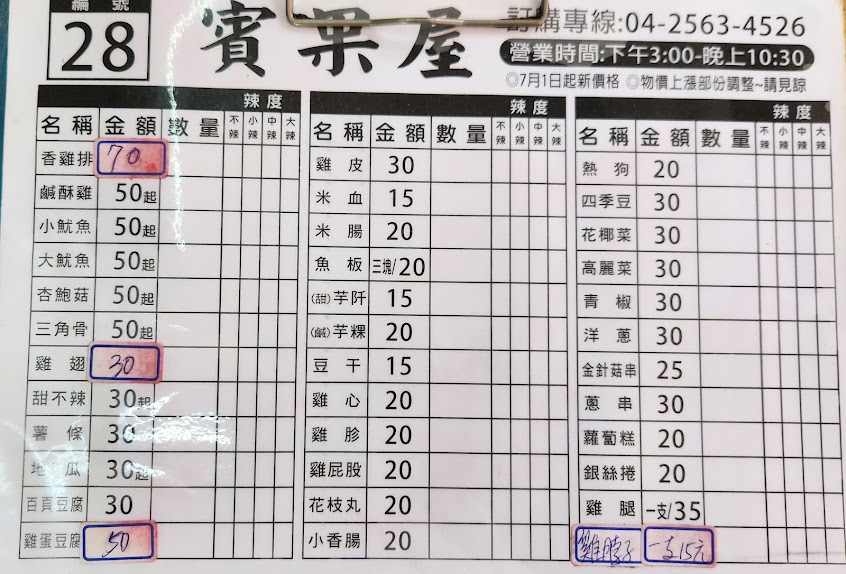 編號
28
賓果屋
訂購專線:04-2563-4526
營業時間:下午3:00-晚上10:30
◎7月1日起新價格 ◎物價上漲部份調整~請見諒
名稱 金額 數量 辣度 不辣 小辣 中辣 大辣
香雞排 70
鹹酥雞 50起
小魷魚 50起
大魷魚 50起
杏鮑菇 50起
三角骨 50起
雞翅 30
甜不辣 30起
薯條 30
地瓜 30起
百頁豆腐 30
雞蛋豆腐 50
名稱 金額 數量 辣度 不辣 小辣 中辣 大辣
雞皮 30
米血 15
米腸 20
魚板 三塊/20
(甜)芋阡 15
(鹹)芋粿 20
豆干 15
雞心 20
雞胗 20
雞屁股 20
花枝丸 20
小香腸 20
名稱 金額 數量 辣度 不辣 小辣 中辣 大辣
熱狗 20
四季豆 30
花椰菜 30
高麗菜 30
青椒 30
洋蔥 30
金針菇串 25
蔥串 30
蘿蔔糕 20
銀絲捲 20
雞腿 一支/35
雞脖子 一支15元